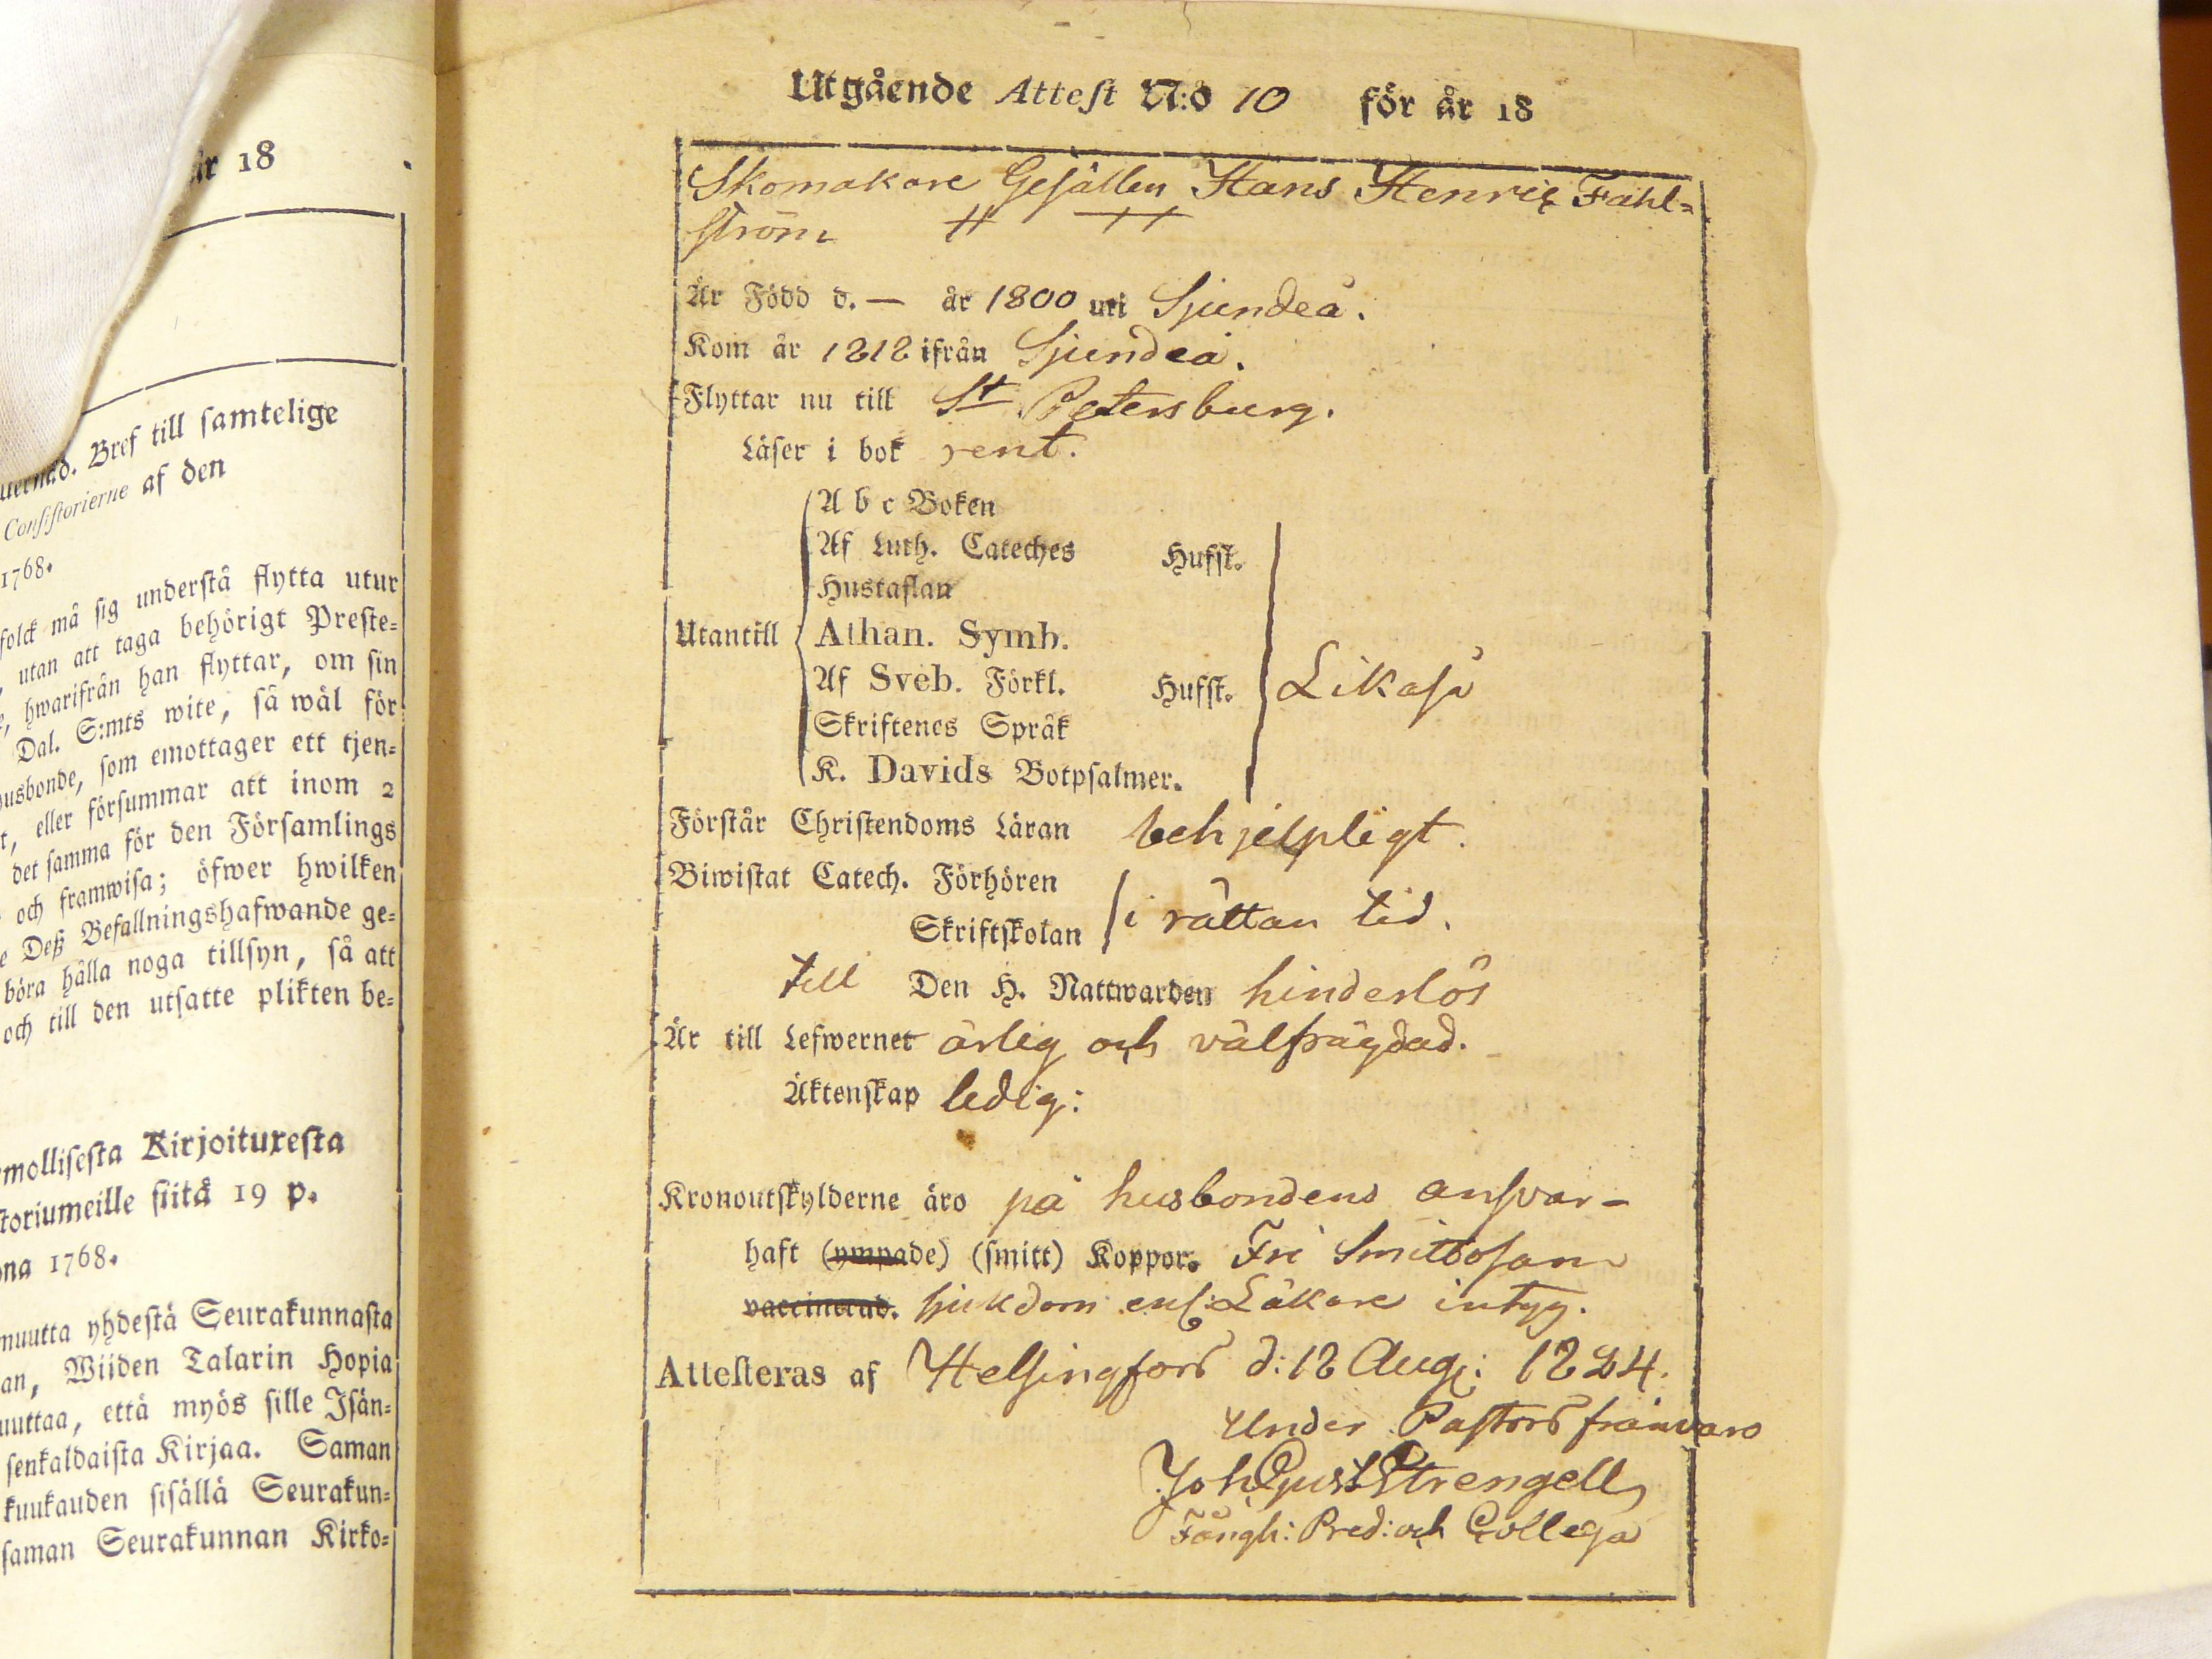 år 18
Bref till samtelige
Consistorierne af den
1768.
folck må sig understå flytta utur
utan att taga behörigt Preste-
hwarifrån han flyttar, om sin
Dal. S:mts wite, så wäl för
husbonde, som emottager ett tjen-
eller försummar att inom 2
det samma för den Församlings
och framwisa; öfwer hwilken
Deß Befallningshafwande ge-
böra hålla noga tillsyn, så att
och till den utsatte plikten be-
mollisesta Kirjoituxesta
toriumeille siitä 19 p.
na 1768.
muutta yhdestä Seurakunnasta
an, Wiiden Talarin Hopia
uuttaa, että myös sille Isän-
senkaldaista Kirjaa. Saman
kuukauden sisällä Seurakun-
saman Seurakunnan Kirko-
Utgående Attest N:o 10 för år 18
Skomakare Gesällen Hans Henric Fahl=
ström
Är Född d. — år 1800 uti Sjundeå.
Kom år 1818 ifrån Sjundeå.
Flyttar nu till St Petersburg.
Läser i bok rent.
A b c Boken
Af Luth. Cateches Hufst.
Hustaflan
Utantill Athan. Symb.
Af Sveb. Förkl. Hufst. Likaså
Skriftenes Språk
K. Davids Botpsalmer.
Förstår Christendoms Läran behjelpligt.
Biwistat Catech. Förhören
Skriftskolan i rättan tid.
till Den H. Nattwarden hinderlös
Är till Lefwernet ärlig och välfrägdad.
Äktenskap ledig:
Kronoutskylderne äro på husbondens answar-
haft (ympade) (smitt) Koppor. Fri Smittosam
vaccinerad. sjukdom enl: Läkare intyg.
Attesteras af Helsingfors d: 18 Aug: 1824.
Under Pastors frånvaro
Joh Gust Strengell
Fångh: Pred: och Collega